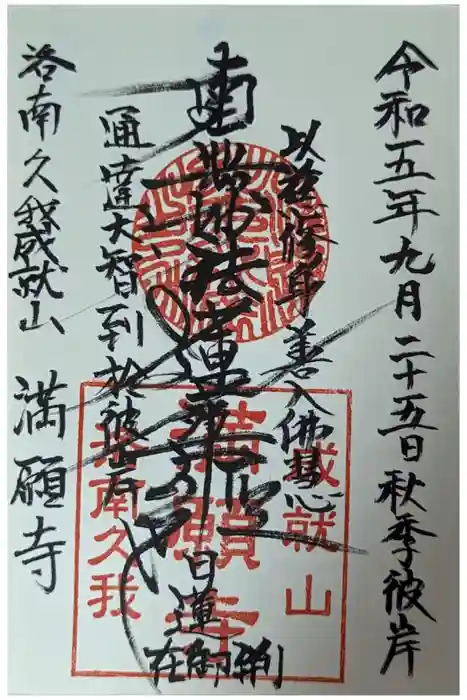 令和五年九月二十五日 秋季彼岸
修善入佛慧心
南無妙法蓮華経
日蓮
在御判
通達大智到於彼岸
谷南久我成就山 満願寺
成就山
満願寺
谷南久我